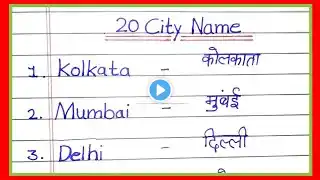 20 City Name
1. Kolkata - कोलकाता
2. Mumbai - मुंबई
3. Delhi - दिल्ली